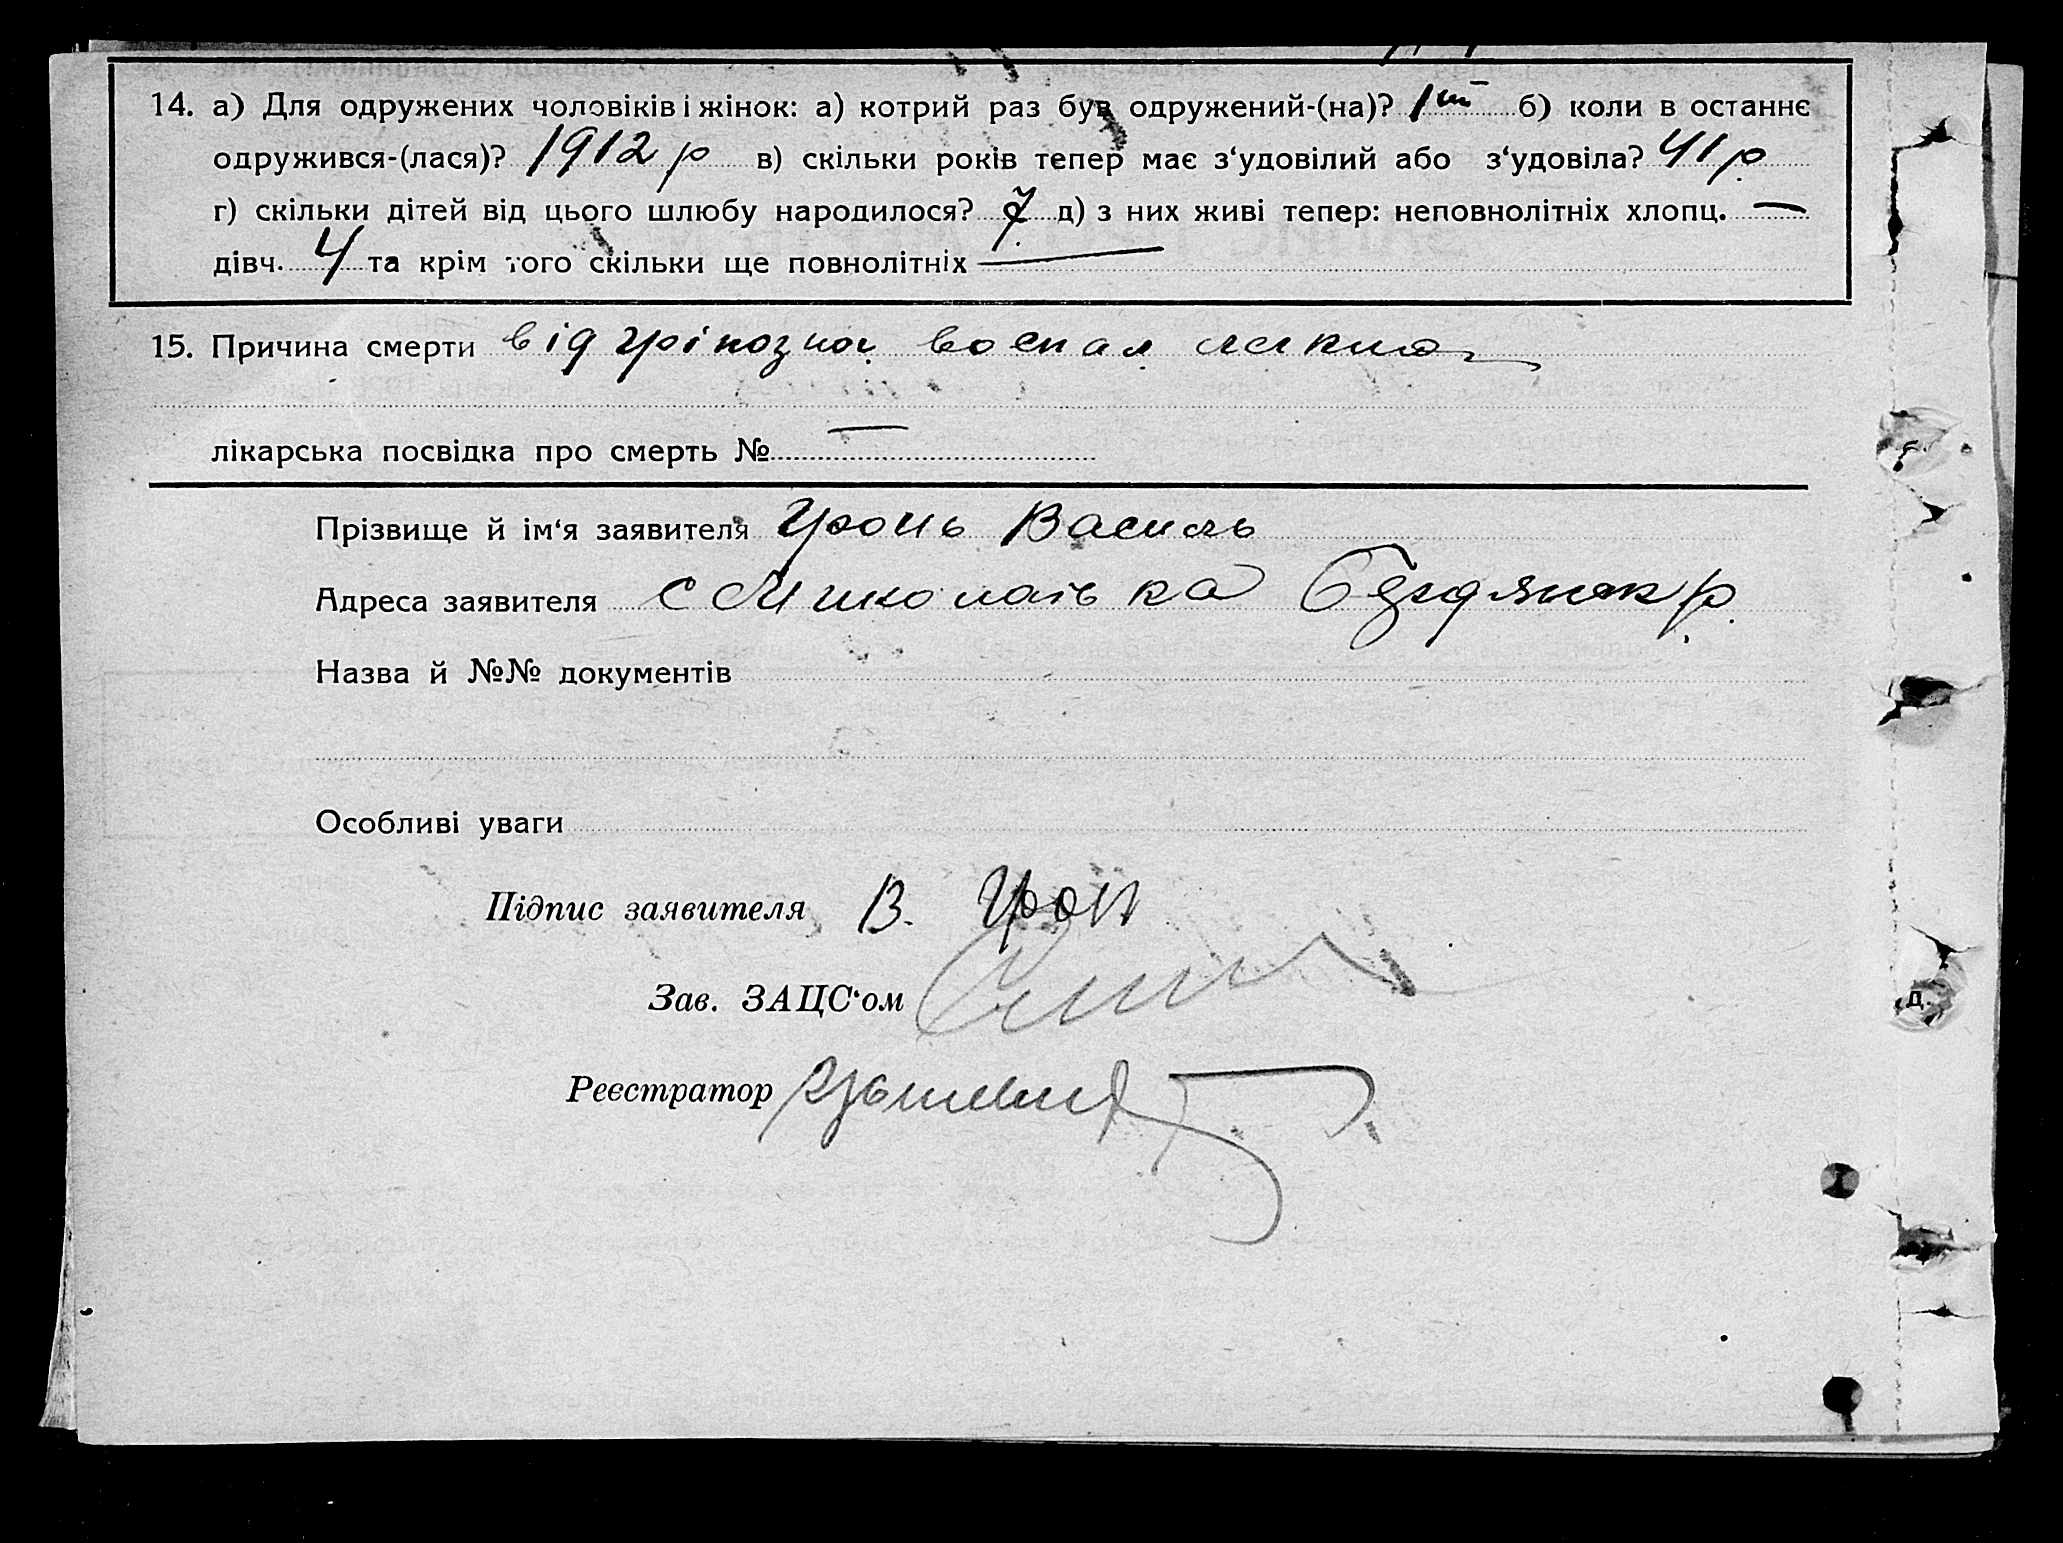 14. а) Для одружених чоловіків і жінок: а) котрий раз був одружений-(на)? 1ий б) коли в останнє
одружився-(лася)? 1912 р в) скільки років тепер має з‘удовілий або з‘удовіла? 41 р.
г) скільки дітей від цього шлюбу народилося? 7 д) з них живі тепер: неповнолітніх хлопц. —
дівч. 4 та крім того скільки ще повнолітніх —
15. Причина смерти від воспал
лікарська посвідка про смерть № —
Прізвище й ім‘я заявителя Гронь Василь
Адреса заявителя с Миколаївка Бердянск р.
Назва й №№ документів
Особливі уваги
Підпис заявителя В. Грон
Зав. ЗАЦС‘ом
Реєстратор
д.